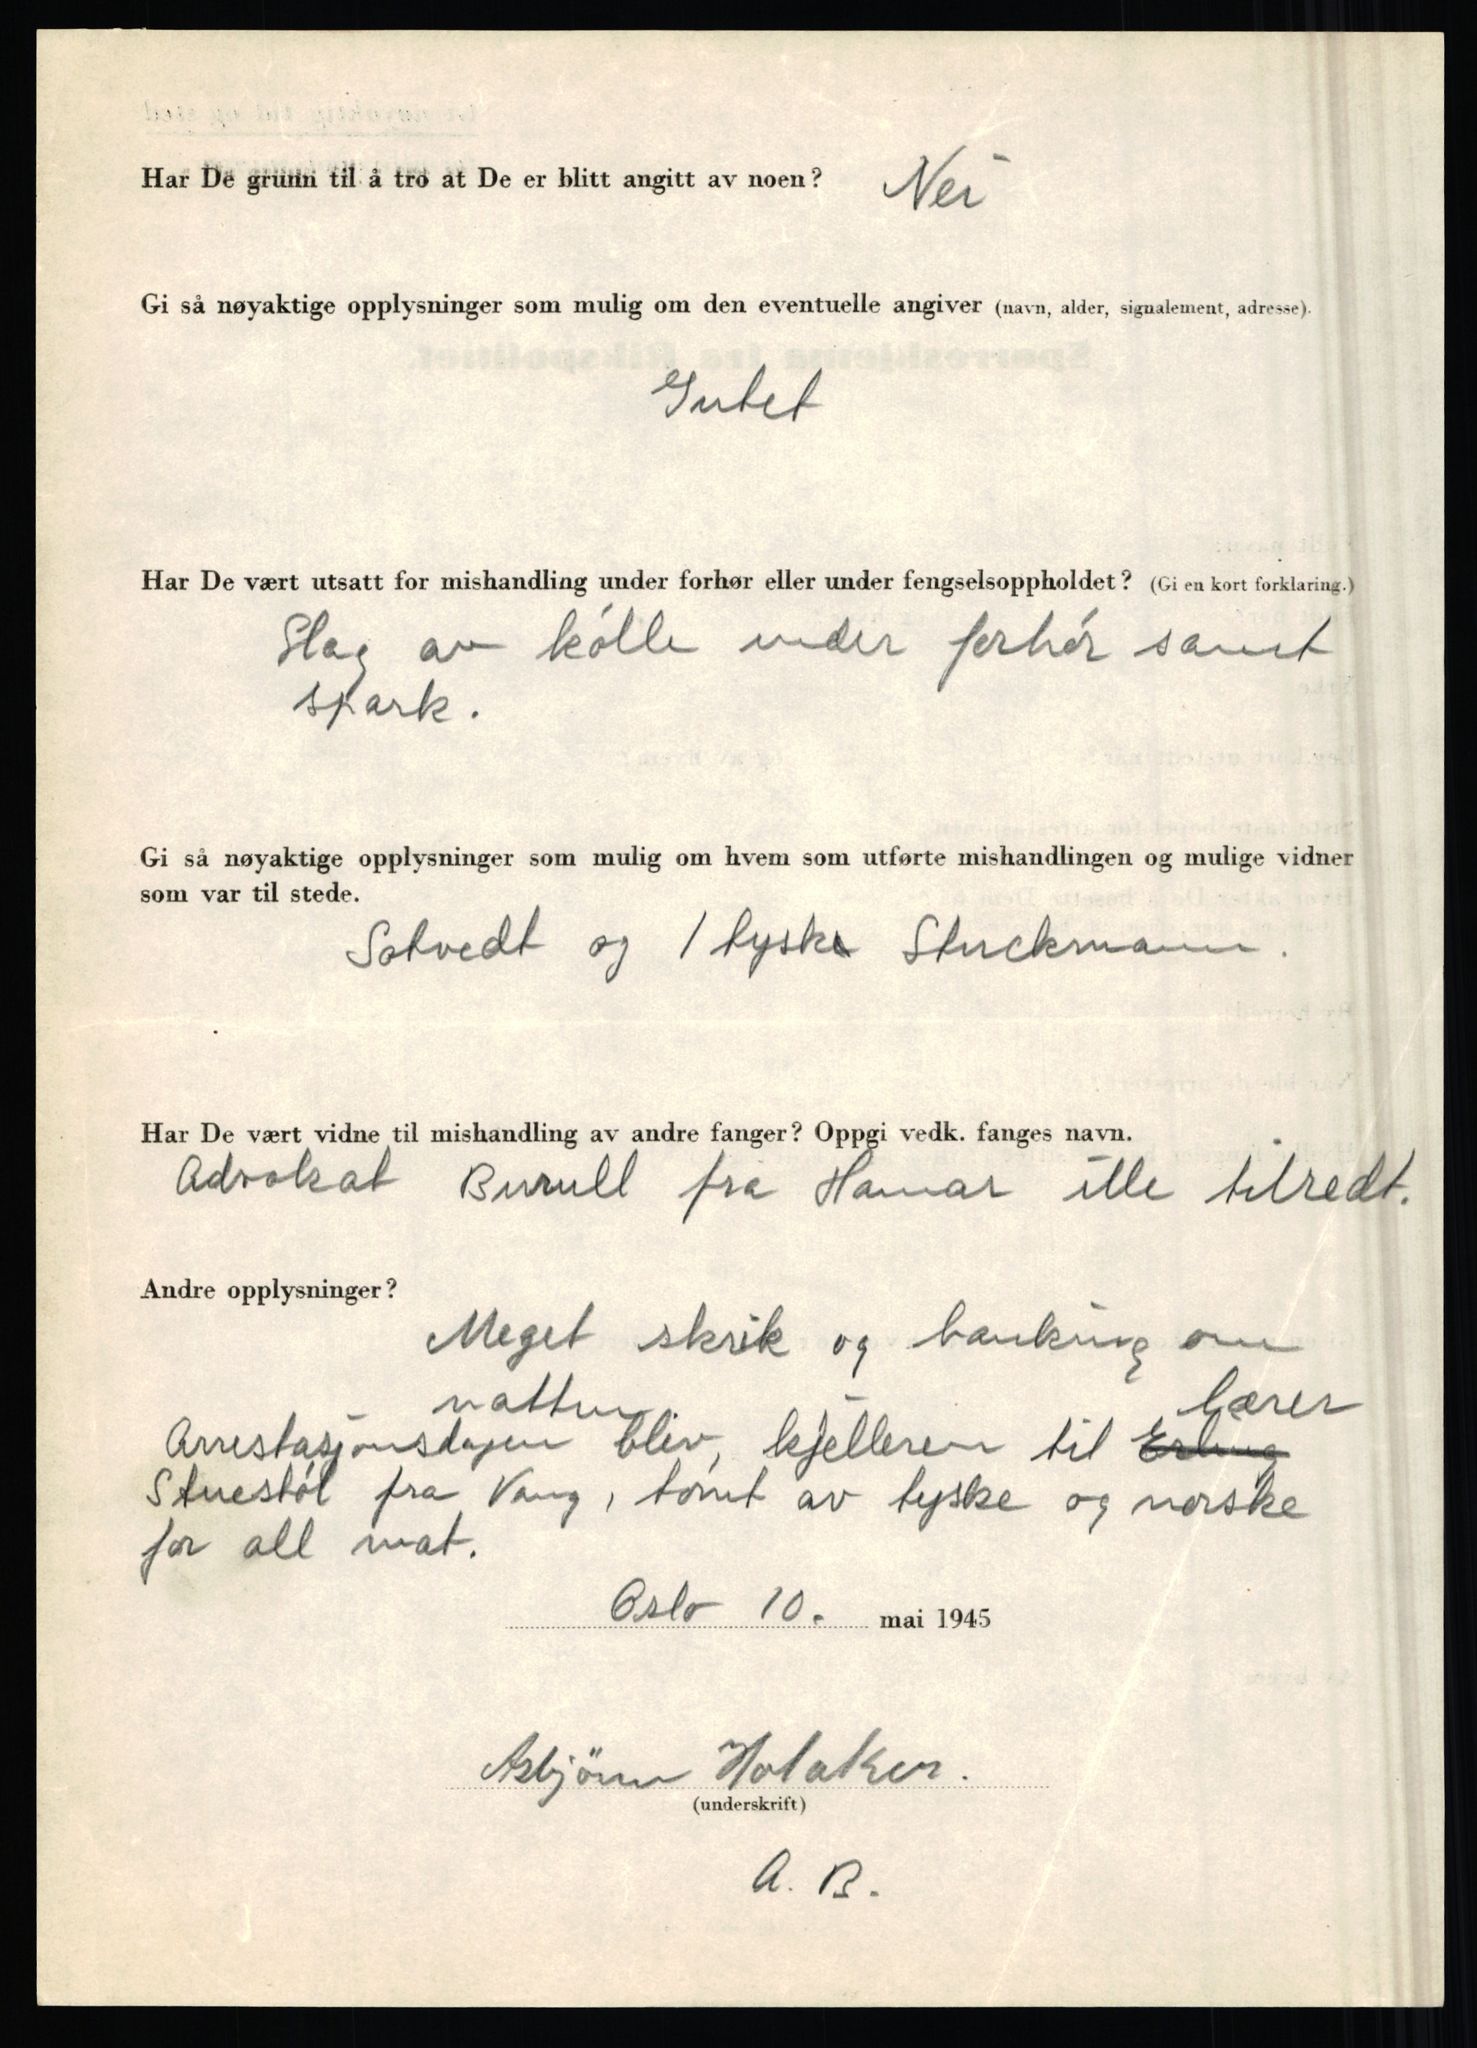 Har De grunn til å tro at De er blitt angitt av noen? Nei
Gi så nøyaktige opplysninger som mulig om den eventuelle angiver (navn, alder, signalement, adresse).
Intet
Har De vært utsatt for mishandling under forhør eller under fengselsoppholdet? (Gi en kort forklaring.)
Slag av kölle under forhör samt
spark.
Gi så nøyaktige opplysninger som mulig om hvem som utførte mishandlingen og mulige vidner
som var til stede.
Solvedt og 1 tysk Stuckmann.
Har De vært vidne til mishandling av andre fanger? Oppgi vedk. fanges navn.
Advokat Burull fra Hamar ille tilredt.
Andre opplysninger?
Meget skrik og banking om
natten
Arrestasjonsdagen blev, kjelleren til Erling lærer
Stuestöl fra Vang, tömt av tyske og norske
for all mat.
Oslo 10. mai 1945
Asbjörn Holaker.
(underskrift)
A. B.